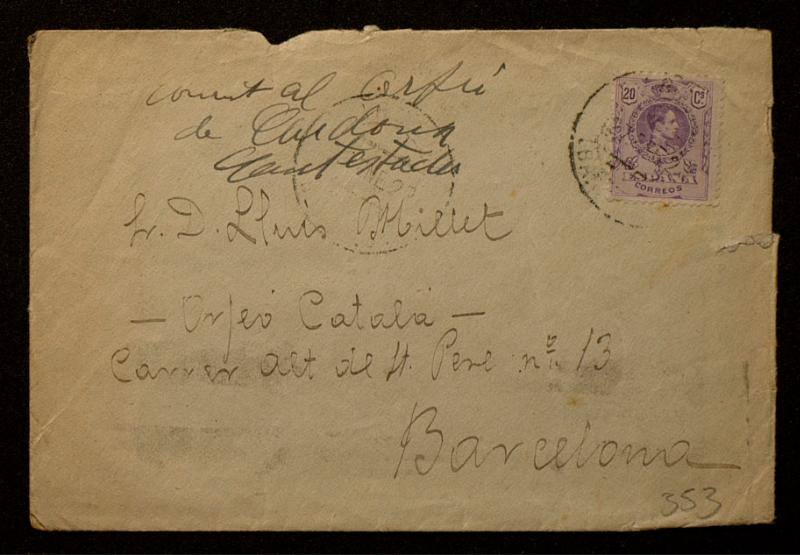 convit al Orfeó
de Cardona
Contestada
20 Cs
CORREOS
Sr. D. Lluís Millet
— Orfeó Català —
Carrer alt de St. Pere nº 13
Barcelona
353